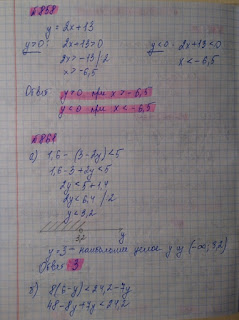 №858
y = 2x+13
y>0: 2x+13>0
2x>-13/2
x>-6,5
y<0: 2x+13<0
x<-6,5
Ответ: y>0 при x>-6,5
y<0 при x<-6,5
№861
а) 1,6-(3-2y)<5
1,6-3+2y<5
2y<5+1,4
2y<6,4 /2
y<3,2
3,2 y
y=3- наибольшее целое y ∈ (-∞;3,2)
Ответ: 3
б) 8(6-y)<24,2-7y
48-8y+7y<24,2